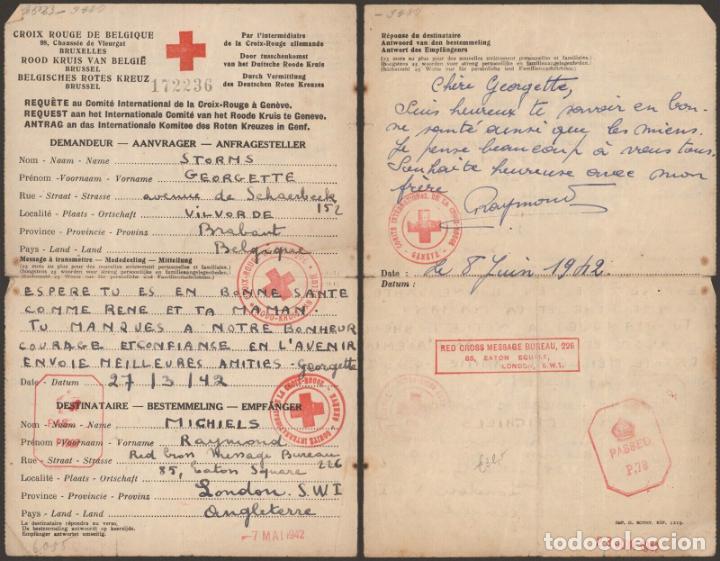 CROIX ROUGE DE BELGIQUE
98, Chaussée de Vleurgat
BRUXELLES
ROOD KRUIS VAN BELGIË
BRUSSEL
BELGISCHES ROTES KREUZ
BRUSSEL
Par l'intermédiaire
de la Croix-Rouge allemande
Door tusschenkomst
van het Duitsche Roode Kruis
Durch Vermittlung
des Deutschen Roten Kreuzes
172236
REQUÊTE au Comité International de la Croix-Rouge à Genève.
REQUEST aan het Internationale Comité van het Roode Kruis te Geneve.
ANTRAG an das Internationale Komitee des Roten Kreuzes in Genf.
DEMANDEUR — AANVRAGER — ANFRAGESTELLER
Nom - Naam - Name STORMS
Prénom - Voornaam - Vorname GEORGETTE
Rue - Straat - Strasse avenue de Schaerbeek
152
Localité - Plaats - Ortschaft VILVORDE
Province - Provincie - Provinz Brabant
Pays - Land - Land Belgique
Message à transmettre — Mededeeling — Mitteilung
(25 mots au plus pour des nouvelles exclusivement personnelles et familiales.)
(hoogstens 25 woorden over streng persoonlijke en familieaangelegenheden.)
ESPERE TU ES EN BONNE SANTE
COMME RENE ET TA MAMAN.
TU MANQUES A NOTRE BONHEUR
COURAGE ET CONFIANCE EN L'AVENIR
ENVOIE MEILLEURES AMITIES Georgette
Date - Datum 27/3/42
DESTINATAIRE — BESTEMMELING — EMPFÄNGER
Nom - Naam - Name MICHIELS
Prénom - Voornaam - Vorname Raymond
Rue - Straat - Strasse Red Cross Message Bureau 226
85, Eaton Square
Localité - Plaats - Ortschaft
Province - Provincie - Provinz London. S.W.1
Pays - Land - Land Angleterre
Le destinataire répondra au verso.
De bestemmeling antwoordt op keerzijde.
Empfänger antwortet umseitig.
-7 MAI 1942
Réponse du destinataire
Antwoord van den bestemmeling
Antwort des Empfängers
(25 mots au plus pour des nouvelles exclusivement personnelles et familiales.)
(hoogstens 25 woorden over streng persoonlijke en familieaangelegenheden.)
(Höchstzahl 25 Worte nur für persönliche und Familienangelegenheiten.)
Chère Georgette,
Suis heureux te savoir en bon-
ne santé ainsi que les miens.
Je pense beaucoup à vous tous.
Souhaite heureuse avec mon
frère
Raymond
COMITÉ INTERNATIONAL DE LA CROIX-ROUGE
GENÈVE
Date : le 8 Juin 1942
Datum :
RED CROSS MESSAGE BUREAU, 226
85, EATON SQUARE,
LONDON, S.W.1.
PASSED
P.78
todocoleccion